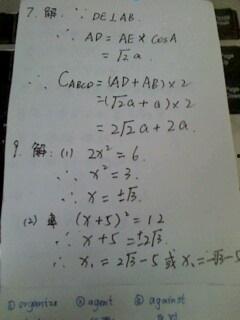 7. 解: ∵ DE⊥AB.
∴ AD = AE × cosA
= √2 a.
∴ C_ABCD = (AD + AB) × 2
= (√2 a + a) × 2
= 2√2 a + 2a.
9. 解: (1) 2x² = 6.
∴ x² = 3.
∴ x = ±√3.
(2) (x+5)² = 12
∴ x+5 = ±2√3.
∴ x₁ = 2√3 - 5 或 x₂ = -√3 - 5
① organize ② agent ③ against